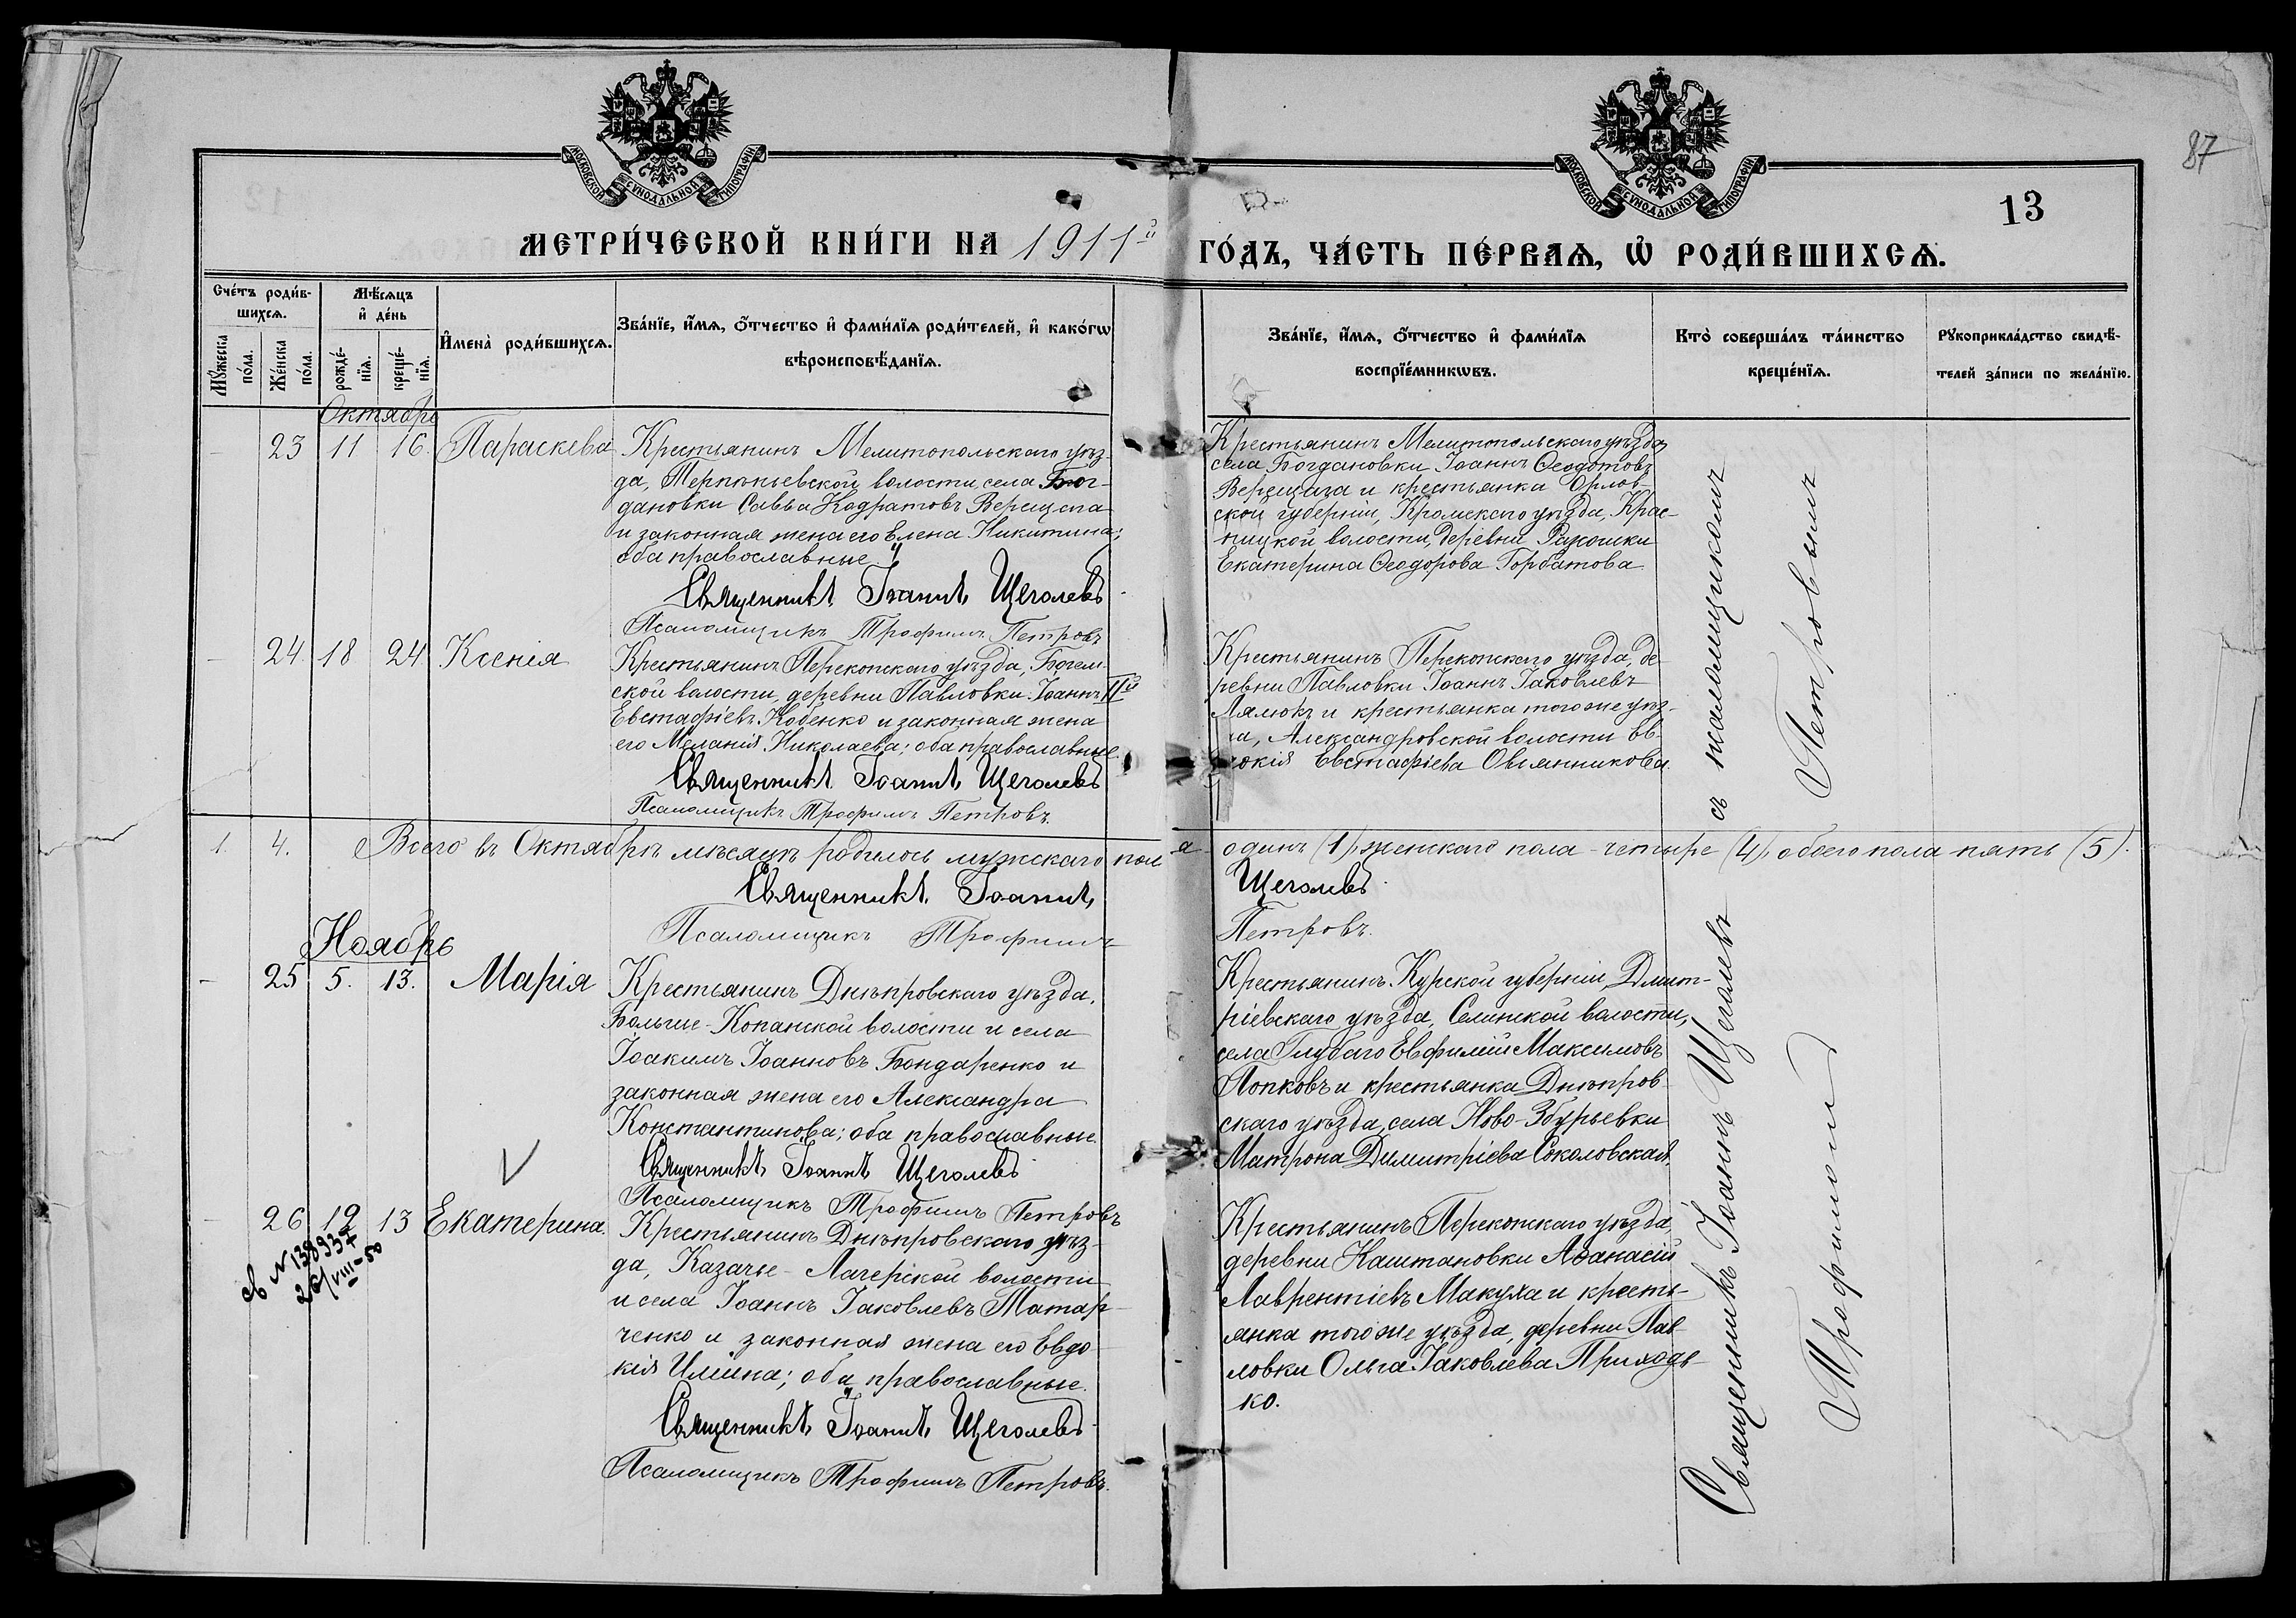 87
13
МОСКОВСКОЙ СѴНОДАЛЬНОЙ ТИПОГРАФІИ
МОСКОВСКОЙ СѴНОДАЛЬНОЙ ТИПОГРАФІИ
МЕТРИ́ЧЕСКОЙ КНИ́ГИ НА 1911й ГО́ДЪ, ЧА́СТЬ ПЕ́РВАѦ, Ѡ҆ РОДИ́ВШИХСѦ.
Сче́тъ роди́в-
шихсѧ.
Мꙋ́жеска по́ла.
Же́нска по́ла.
Мѣ́сѧцъ
и҆ де́нь
рожде́-
нїѧ.
креще́-
нїѧ.
И҆мена̀ роди́вшихсѧ.
Зва́нїе, и҆́мѧ, ѻ҆́тчество и҆ фами́лїѧ роди́телей, и҆ како́гѡ
вѣроисповѣ́данїѧ.
Зва́нїе, и҆́мѧ, ѻ҆́тчество и҆ фами́лїѧ
воспрїе́мникѡвъ.
Кто̀ соверша́лъ та́инство
креще́нїѧ.
Рꙋкоприкла́дство свидѣ́-
телей за́писи по жела́нїю.
Октябрь
- 23 11 16. Параскева
Крестьянинъ Мелитопольскаго уѣз-
да, Терпѣньевской волости, села Бог-
дановки Савва Кодратовъ Верещага
и законная жена его Елена Никитина;
оба православные
Священникъ Іоаннъ Щеголевъ
Псаломщикъ Трофимъ Петровъ
Крестьянинъ Мелитопольскаго уѣзда,
села Богдановки Іоаннъ Ѳеодотовъ
Верещага и крестьянка Орлов-
ской губерніи, Кромскаго уѣзда, Крас-
ницкой волости, деревни
Екатерина Ѳеодорова Горбатова
- 24. 18 24. Ксенія
Крестьянинъ Перекопскаго уѣзда, Богем-
ской волости, деревни Павловки Іоаннъ IIй
Евстафіевъ Кобенко и законная жена
его Меланія Николаева; оба православные
Священникъ Іоаннъ Щеголевъ
Псаломщикъ Трофимъ Петровъ.
Крестьянинъ Перекопскаго уѣзда, де-
ревни Павловки Іоаннъ Іаковлевъ
Лялюкъ и крестьянка того же уѣз-
да, Александровской волости Ев-
докія Евстафіева Овсянникова.
1. 4. Всего въ Октябрѣ мѣсяцѣ родилось мужскаго пола - одинъ (1), женскаго пола - четыре (4), обоего пола пять (5).
Священникъ Іоаннъ Щеголевъ
Псаломщикъ Трофимъ Петровъ.
Ноябрь
- 25 5. 13. Марія
Крестьянинъ Днѣпровскаго уѣзда,
Больше-Копанской волости и села
Іоакимъ Іоанновъ Бондаренко и
законная жена его Александра
Константинова; оба православные.
Священникъ Іоаннъ Щеголевъ
Псаломщикъ Трофимъ Петровъ
Крестьянинъ Курской губерніи, Дмит-
ріевскаго уѣзда, Селинской волости,
села Глубаго Евфимій Максимовъ
Лопковъ и крестьянка Днѣпров-
скаго уѣзда, села Ново-Збурьевки
Матрона Димитріева Соколовская.
- 26 12 13 Екатерина.
св N 138937
26/VIII-50
Крестьянинъ Днѣпровскаго уѣз-
да, Казачье-Лагерской волости
и села Іоаннъ Іаковлевъ Татар-
ченко и законная жена его Евдо-
кія Илііна; оба православные.
Священникъ Іоаннъ Щеголевъ
Псаломщикъ Трофимъ Петровъ.
Крестьянинъ Перекопскаго уѣзда,
деревни Каштановки Аѳанасій
Лаврентіевъ Макуха и кресть-
янка того же уѣзда, деревни Пав-
ловки Ольга Іаковлева Приходь-
ко.
Священникъ Іоаннъ Щеголевъ съ псаломщикомъ
Трофимомъ Петровымъ